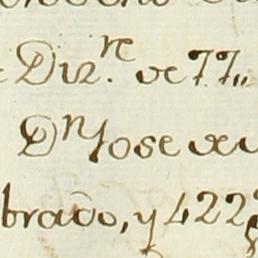 Diz.re de 77,,
Dn Jose de
brado, y 422